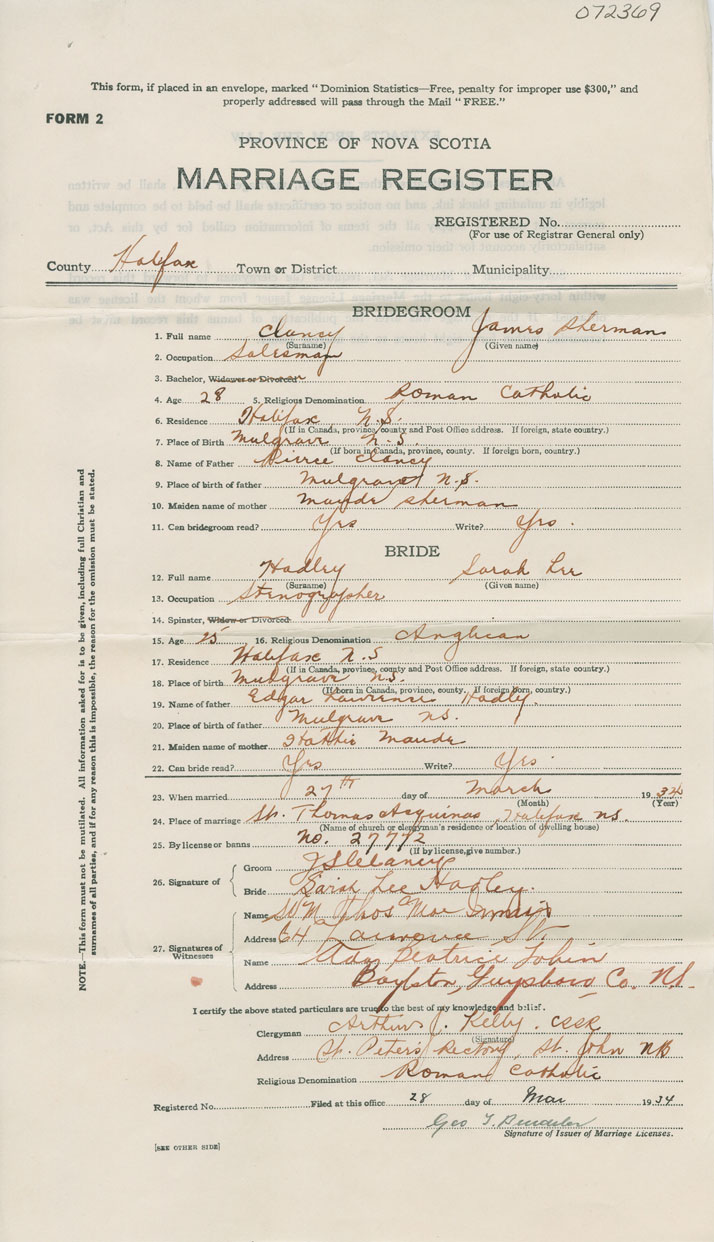 072369
This form, if placed in an envelope, marked "Dominion Statistics—Free, penalty for improper use $300," and
properly addressed will pass through the Mail "FREE."
FORM 2
PROVINCE OF NOVA SCOTIA
MARRIAGE REGISTER
REGISTERED No.
(For use of Registrar General only)
County Halifax Town or District Municipality
BRIDEGROOM
1. Full name Clancy James Sherman
(Surname) (Given name)
2. Occupation Salesman
3. Bachelor, Widower or Divorced
4. Age 28 5. Religious Denomination Roman Catholic
6. Residence Halifax N.S.
(If in Canada, province, county and Post Office address. If foreign, state country.)
7. Place of Birth Mulgrave N.S.
(If born in Canada, province, county. If foreign born, country.)
8. Name of Father Pierce Clancy
9. Place of birth of father Mulgrave N.S.
10. Maiden name of mother Maude Sherman
11. Can bridegroom read? Yes Write? Yes.
BRIDE
12. Full name Hadley Sarah Lee
(Surname) (Given name)
13. Occupation Stenographer
14. Spinster, Widow or Divorced
15. Age 25 16. Religious Denomination Anglican
17. Residence Halifax N.S
(If in Canada, province, county and Post Office address. If foreign, state country.)
18. Place of birth Mulgrave N.S.
(If born in Canada, province, county. If foreign born, country.)
19. Name of father Edgar Lawrence Hadley.
20. Place of birth of father Mulgrave NS.
21. Maiden name of mother Hattie Maude
22. Can bride read? Yes Write? Yes.
23. When married 27th day of March 1934
(Month) (Year)
24. Place of marriage St. Thomas Acquinas, Halifax NS.
(Name of church or clergyman's residence or location of dwelling house)
25. By license or banns No. 27772
(If by license, give number.)
26. Signature of Groom J S Clancy
Bride Sarah Lee Hadley.
27. Signatures of Witnesses
Name Wm Thos Mac Innis
Address 64 Lawrence St.
Name Ada Beatrice Tobin
Address Boylston, Guysboro Co. N.S.
I certify the above stated particulars are true to the best of my knowledge and belief.
Clergyman Arthur J. Kelly. CSSR
(Signature)
Address St. Peters Rectory, St. John NB
Religious Denomination Roman Catholic
Registered No. Filed at this office 28 day of Mar 1934
Geo T.
Signature of Issuer of Marriage Licenses.
[SEE OTHER SIDE]
NOTE.—This form must not be mutilated. All information asked for is to be given, including full Christian and
surnames of all parties, and if for any reason this is impossible, the reason for the omission must be stated.